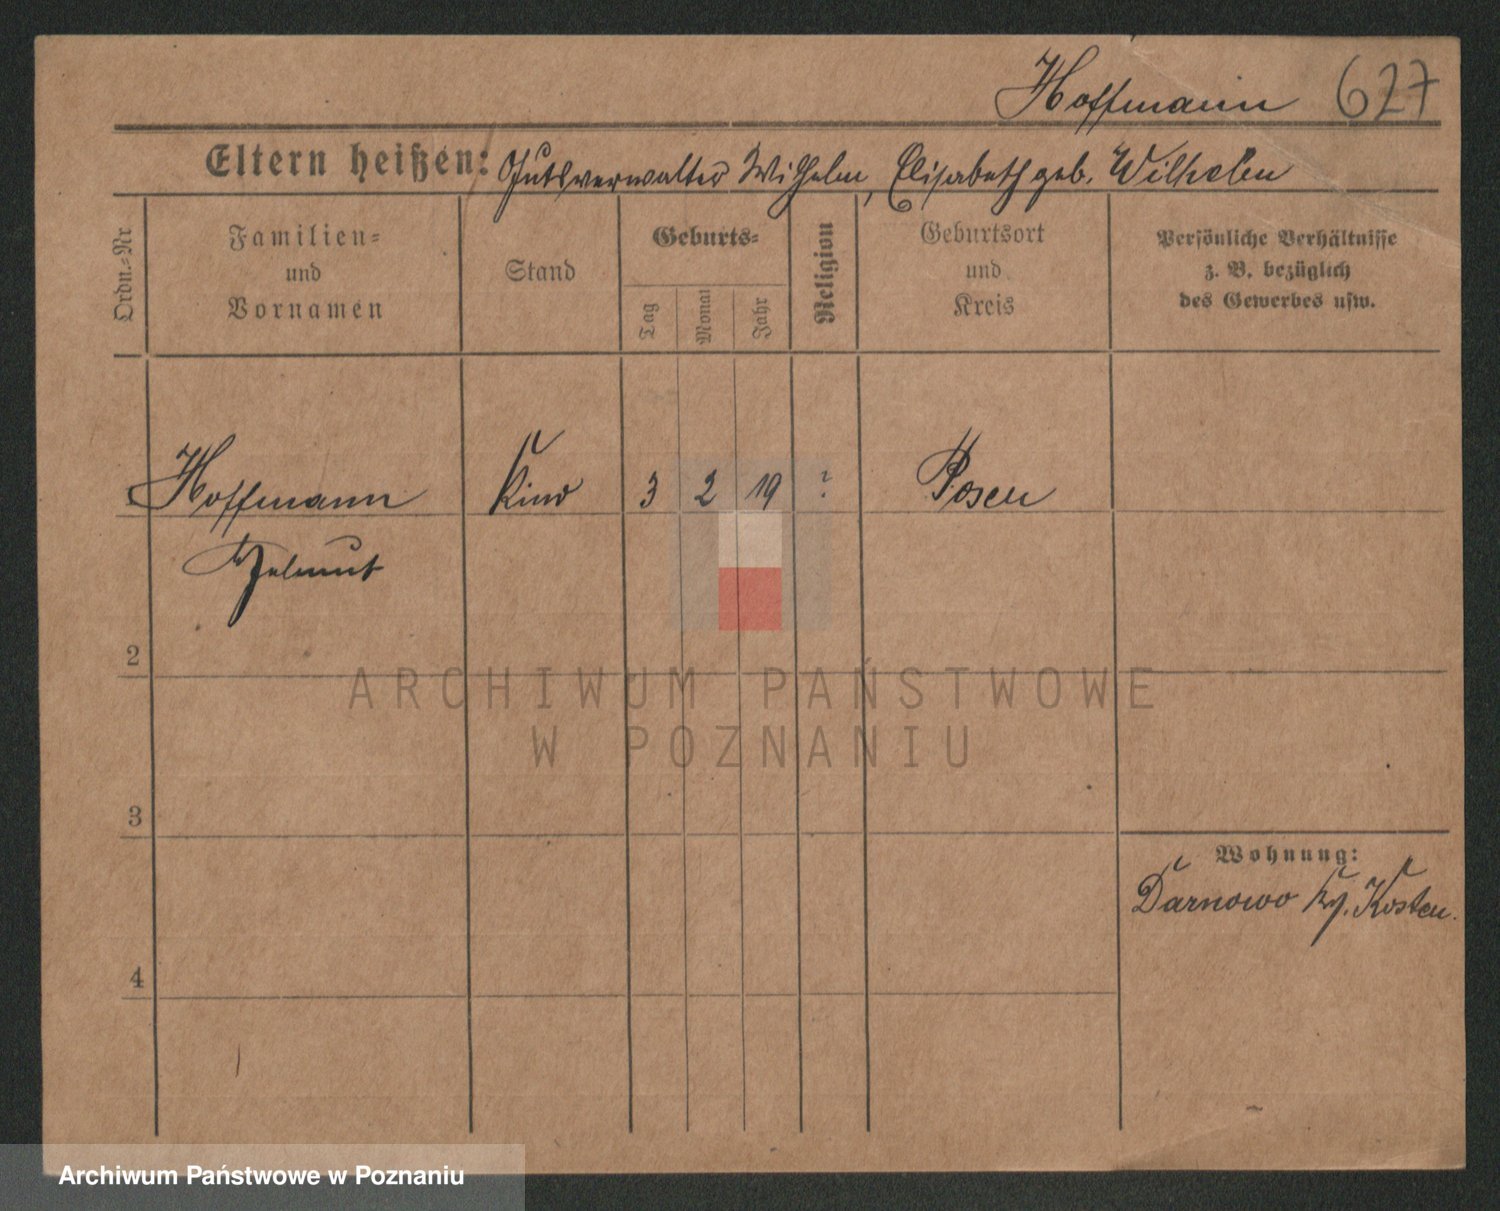 Hoffmann 627
Eltern heißen: Gutsverwalter Wilhelm, Elisabeth geb. Wilhelm
Ordn.-Nr
Familien-
und
Vornamen
Stand
Geburts-
Tag
Monat
Jahr
Religion
Geburtsort
und
Kreis
Persönliche Verhältnisse
z. B. bezüglich
des Gewerbes usw.
Hoffmann Kind 3 2 19 ? Posen
Helmut
2
ARCHIWUM PAŃSTWOWE
W POZNANIU
3
Wohnung:
Darnowo Krs. Kosten.
4
Archiwum Państwowe w Poznaniu